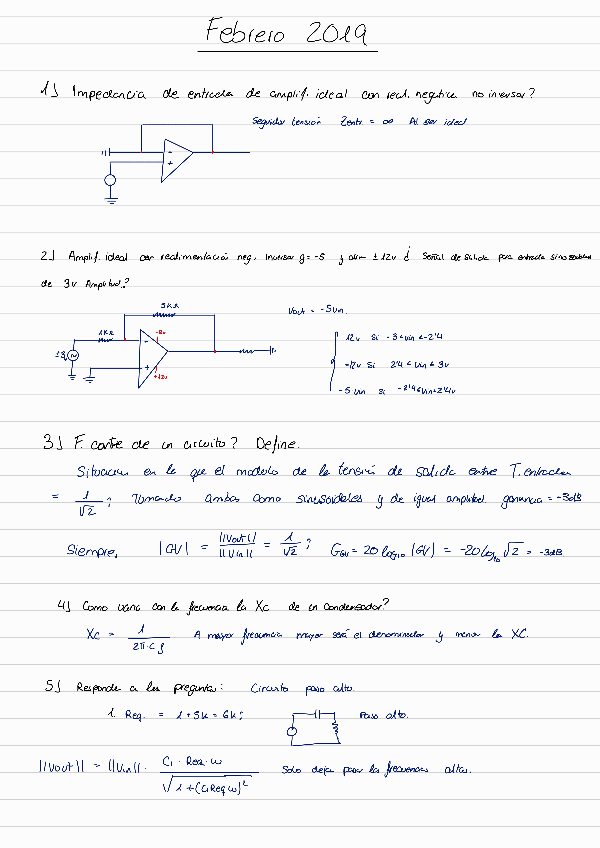 Febrero 2019
1) Impedancia de entrada de amplif. ideal con real. negativa no inversor?
Seguidor tensión Zentr = ∞ Al ser ideal
-
+
2) Amplif. ideal con realimentación neg. inversor g = -5 y alim ± 12v ¿ Señal de salida para entrada sinusoidal
de 3v Amplitud?
5kΩ
1kΩ
-
+
+12v
Vout = -5Vin.
12v si -3<vin<-2'4
-12v si 2'4 < vin < 3v
-5 Vin si -2'4<Vin<2'4v
3) F. corte de un circuito? Define.
Situación en la que el modulo de la tensión de salida entre T. entrada
= 1/√2 ; Tomando ambas como sinusoidales y de igual amplitud. ganancia = -3dB
Siempre, |GV| = ||Vout||/||Vin|| = 1/√2 ; GGV = 20 log10 |GV| = -20 log10 √2 = -3dB
4) Como varia con la frecuencia la Xc de un condensador?
Xc = 1/2π·C·f A mayor frecuencia mayor será el denominador y menor la XC.
5) Responde a las preguntas: Circuito paso alto.
1. Req. = 1+5k = 6k; Paso alto.
||Vout|| = ||Vin|| · C1·Req·ω/√1+(C1Req ω)² Solo deja pasar las frecuencias altas.